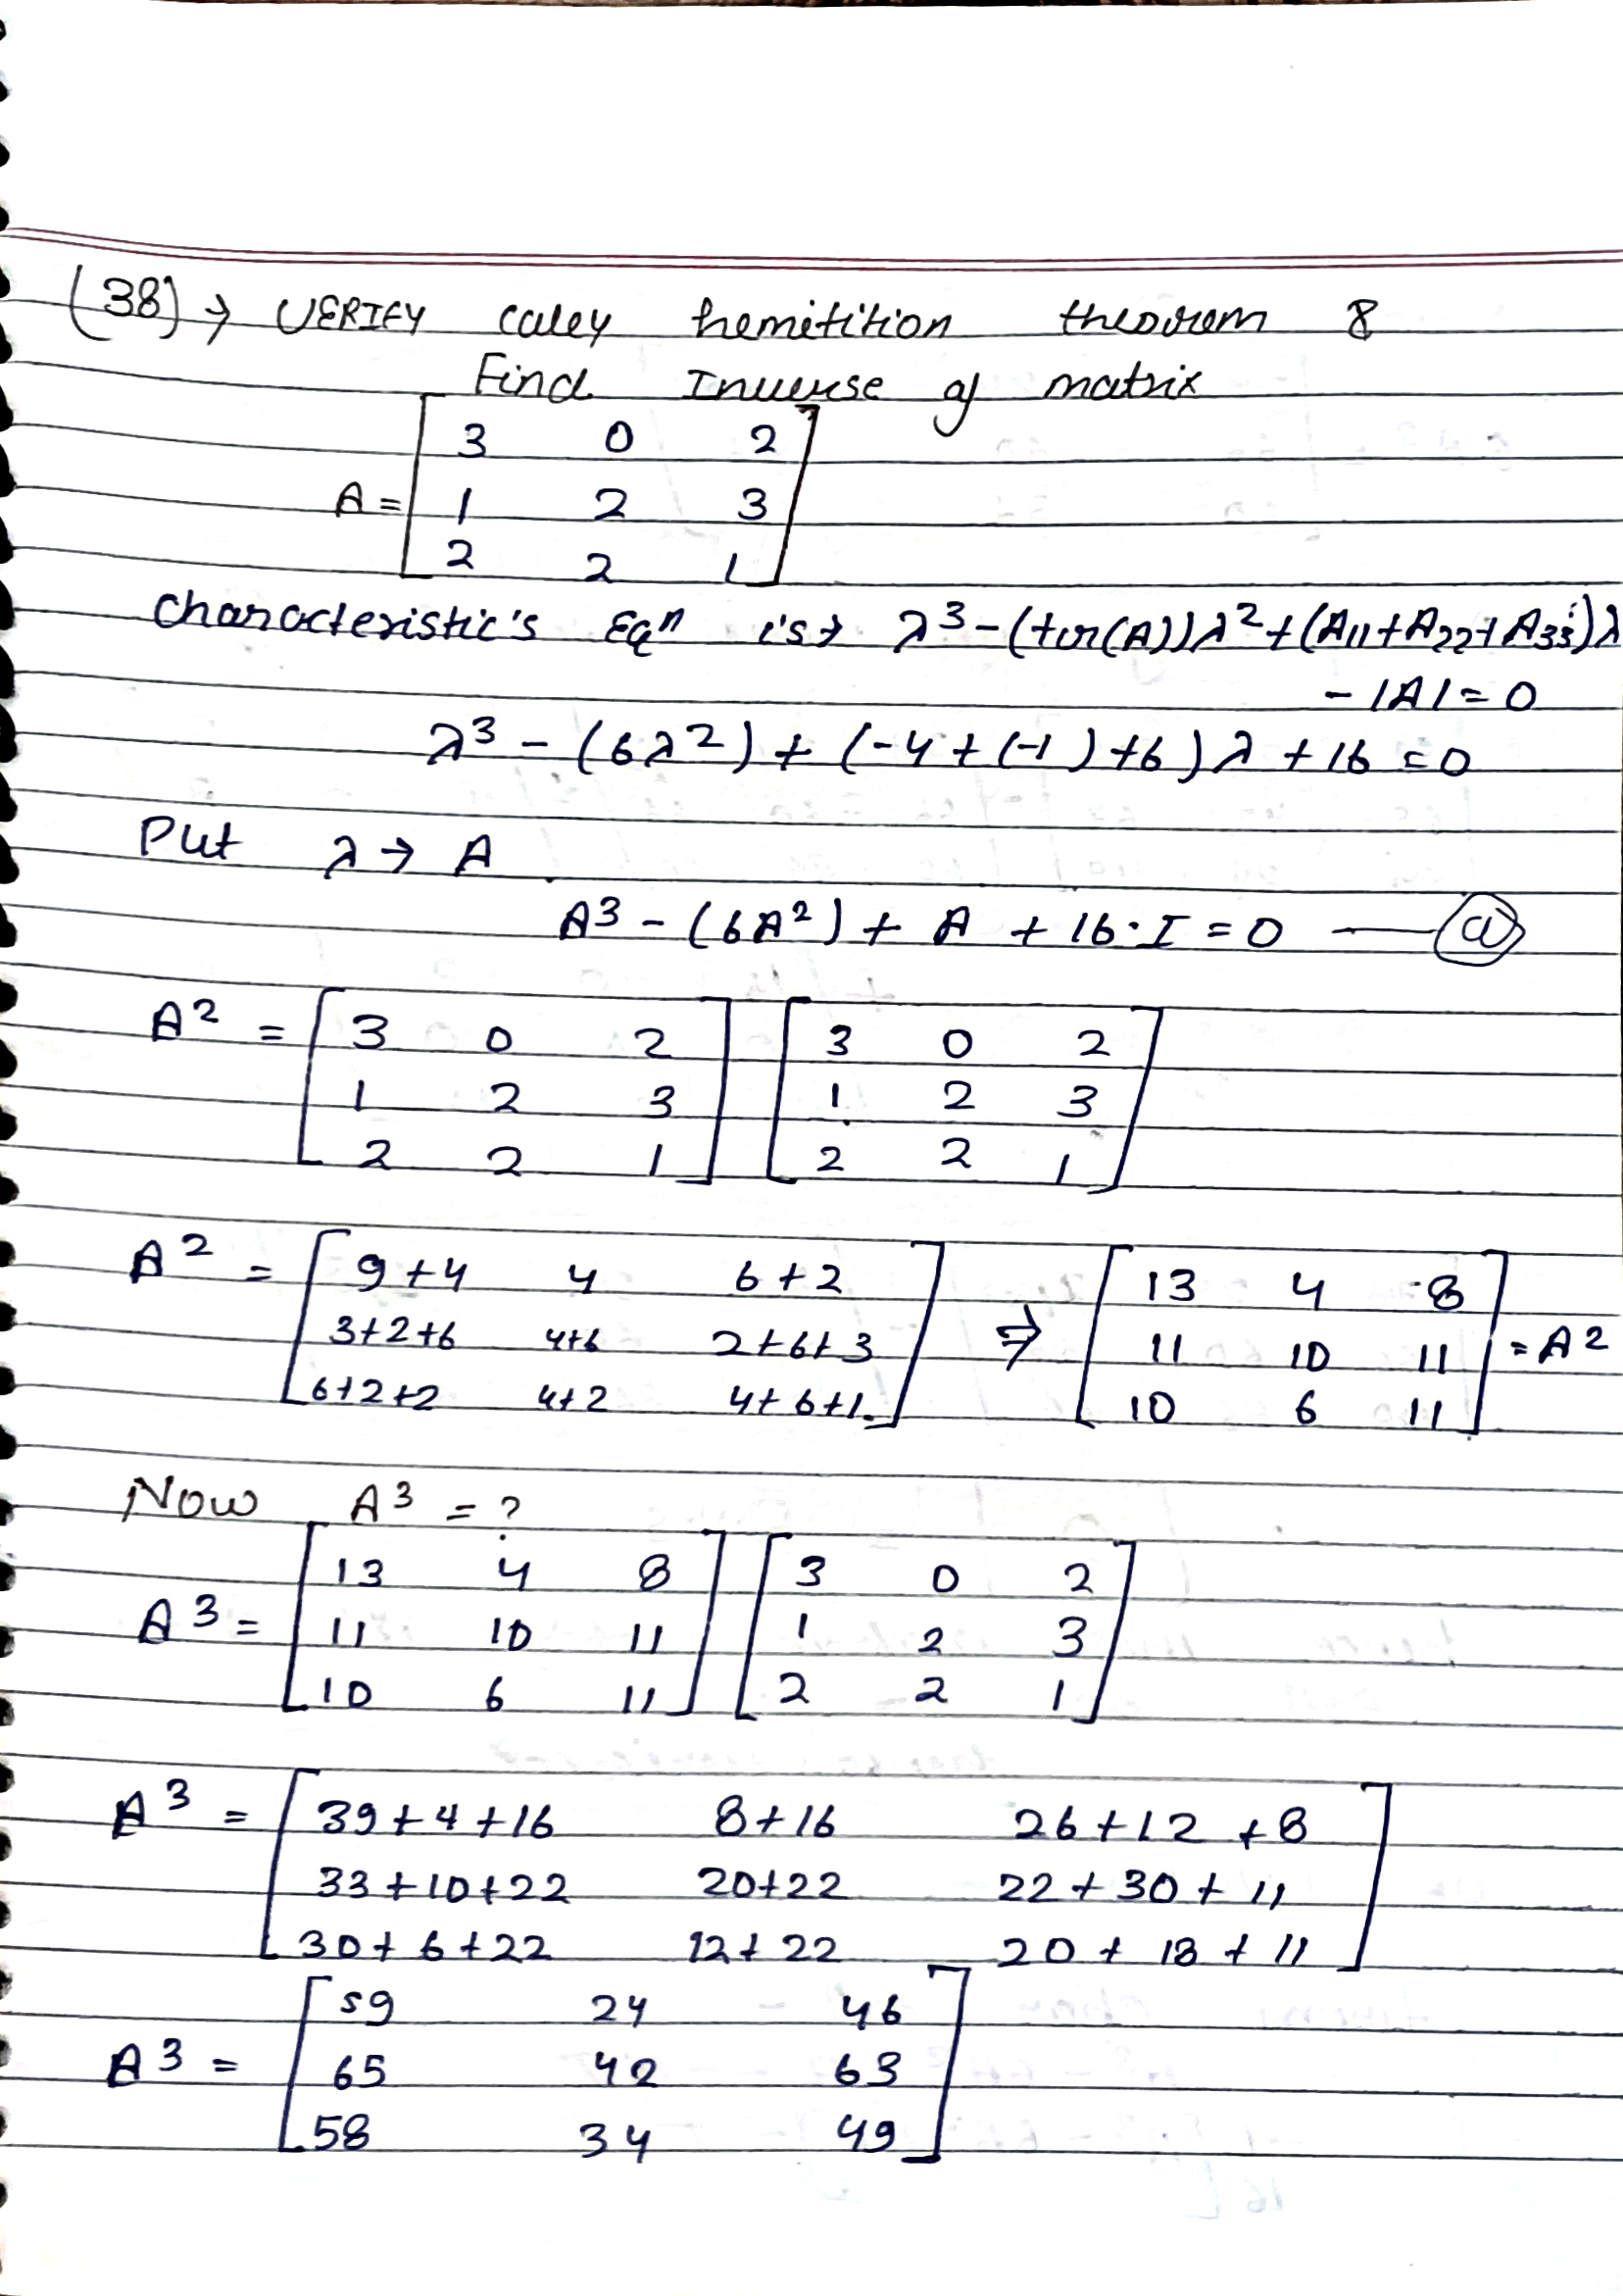 (38) → VERIFY caley hemitition theorem &
Find Inverse of matrix
3 0 2
A = 1 2 3
2 2 1
Characteristic's Eqⁿ is → λ³ - (tr(A))λ² + (A11 + A22 + A33)λ
- |A| = 0
λ³ - (6λ²) + (-4 + (-1) + 6)λ + 16 = 0
Put λ → A
A³ - (6A²) + A + 16·I = 0 — (a)
A² = [3 0 2] [3 0 2]
[1 2 3] [1 2 3]
[2 2 1] [2 2 1]
A² = [9+4 4 6+2] ⇒ [13 4 8]
[3+2+6 4+6 2+6+3] [11 10 11] = A²
[6+2+2 4+2 4+6+1] [10 6 11]
Now A³ = ?
[13 4 8] [3 0 2]
A³ = [11 10 11] [1 2 3]
[10 6 11] [2 2 1]
A³ = [39+4+16 8+16 26+12+8]
[33+10+22 20+22 22+30+11]
[30+6+22 12+22 20+18+11]
[59 24 46]
A³ = [65 42 63]
[58 34 49]